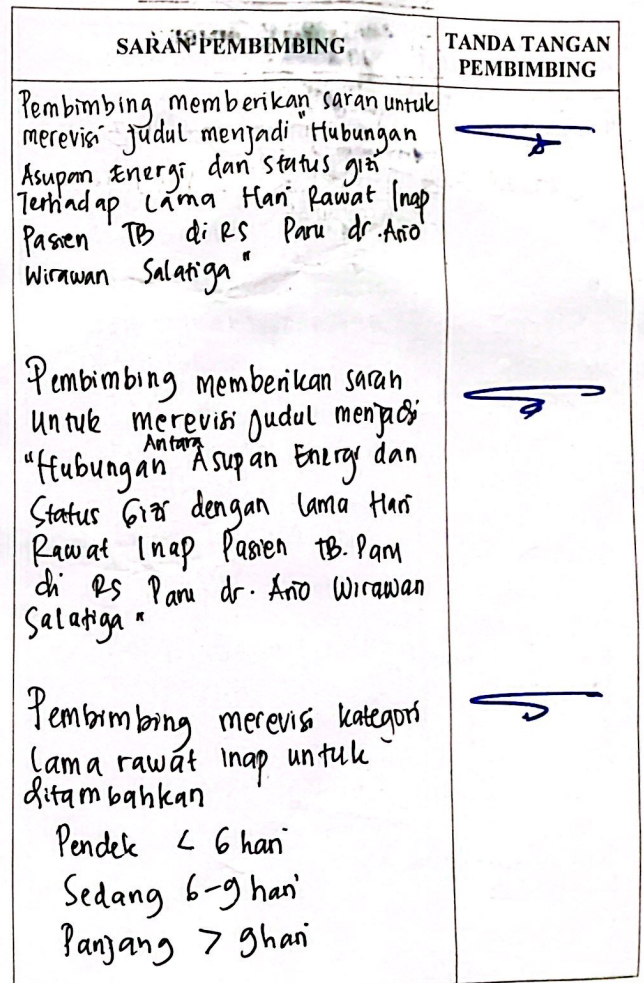 SARAN PEMBIMBING
TANDA TANGAN
PEMBIMBING
Pembimbing memberikan saran untuk
merevisi judul menjadi "Hubungan
Asupan Energi dan Status gizi
Terhadap Lama Hari Rawat Inap
Pasien TB di RS Paru dr. Ario
Wirawan Salatiga"
Pembimbing memberikan saran
untuk merevisi judul menjadi
"Hubungan Antara Asupan Energi dan
Status Gizi dengan Lama Hari
Rawat Inap Pasien TB. Paru
di RS Paru dr. Ario Wirawan
Salatiga"
Pembimbing merevisi kategori
lama rawat inap untuk
ditambahkan
Pendek < 6 hari
Sedang 6-9 hari
Panjang > 9 hari